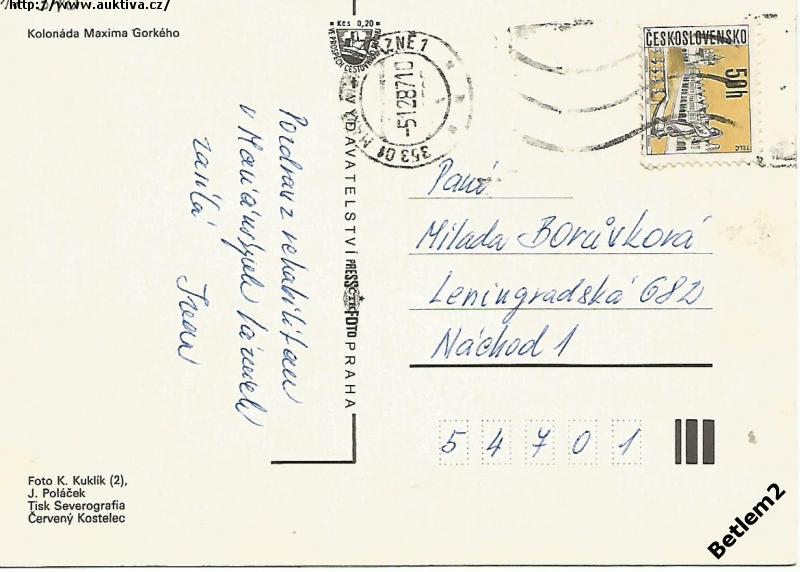 http://www.auktiva.cz/
Kolonáda Maxima Gorkého
Kčs 0,20
VE PROSPĚCH CESTOVNÍHO
ZNĚ 1
-5.12.87.10
353 01 MA
ČESKOSLOVENSKO
50h
TELČ
Pozdrav z rehabilitace
v Mariánských Lázních
zasílá Irena
VYDAVATELSTVÍ PRESSFOTO PRAHA
Paní
Milada Borůvková
Leningradská 682
Náchod 1
54701
Foto K. Kuklík (2),
J. Poláček
Tisk Severografia
Červený Kostelec
Betlem2